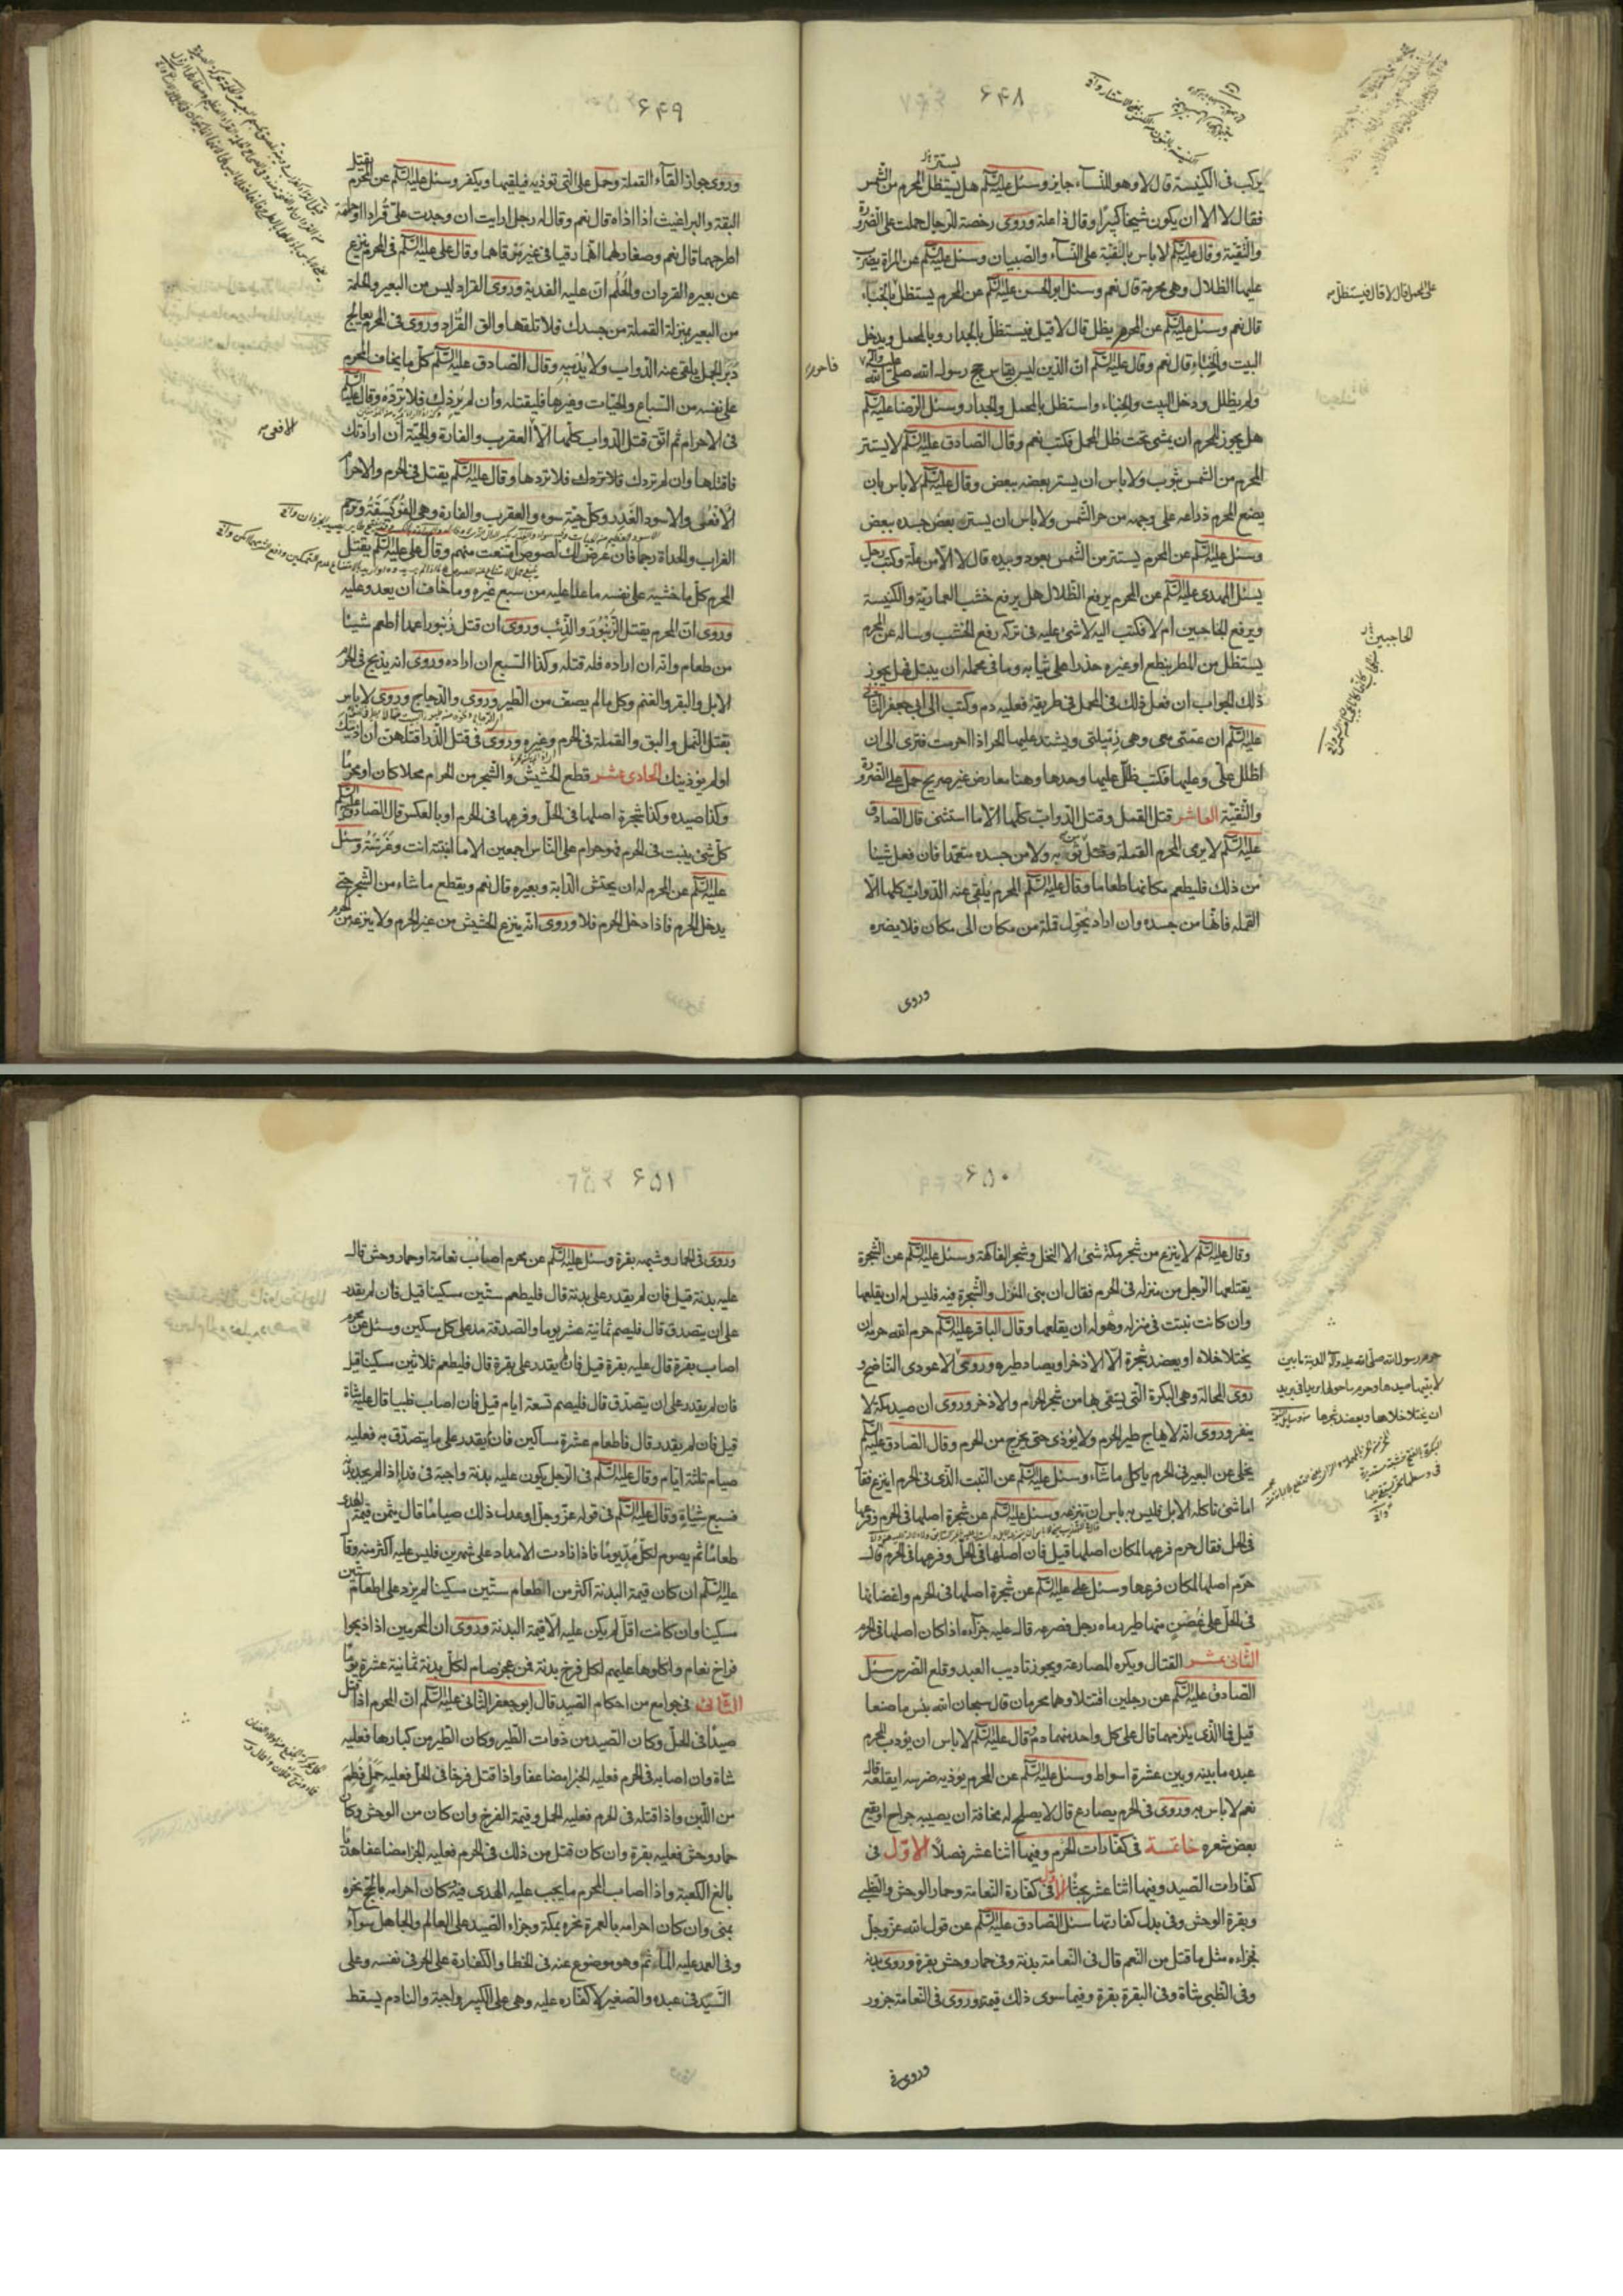 ۶۴۸
يركب فى الكنيسة قال لا وهو للنساء جايز وسئل عليه السلام هل يستظل المحرم من الشمس
فقال لا الا ان يكون شيخا كبيرا وقال ذا علة وروى رخصة للرجال حملت على الضرورة
والتقية وقال عليه السلام لا باس بالقبة على النساء والصبيان وسئل عليه السلام عن المراة يضرب
عليها الظلال وهى محرمة قال نعم وسئل ابو الحسن عليه السلام عن المحرم يستظل بالخباء
قال نعم وسئل عليه السلام عن المحرم يظل قال لا قيل فيستظل بالجدار وبالمحمل ويدخل
البيت والخباء قال نعم وقال عليه السلام ان الدين ليس بقياس حج رسول الله صلى الله عليه وآله
ولم يظلل ودخل البيت والخباء واستظل بالمحمل والجدار وسئل الرضا عليه السلام
هل يجوز للمحرم ان يمشى تحت ظل المحمل فكتب نعم وقال الصادق عليه السلام لا يستتر
المحرم من الشمس بثوب ولا باس ان يستر بعضه ببعض وقال عليه السلام لا باس بان
يضع المحرم ذراعه على وجهه من حر الشمس ولا باس ان يستر بعض جسده ببعض
وسئل عليه السلام عن المحرم يستتر من الشمس بعود وبيده قال لا الا من علة وكتب رجل
يسئل المهدى عليه السلام عن المحرم يرفع الظلال هل يرفع خشب العمارية والكنيسة
ويرفع الجناحين ام لا فكتب اليه لا شئ عليه فى تركه رفع الخشب وساله عن المحرم
يستظل من المطر بنطع او غيره حذرا على ثيابه وما فى محمله ان يبتل فهل يجوز
ذلك الجواب ان فعل ذلك فى المحمل فى طريقه فعليه دم وكتب الى ابى جعفر الثانى
عليه السلام ان عمتى معى وهى زميلتى ويشتد عليها الحر اذا احرمت فترى لى ان
اظلل على وعليها فكتب ظلل عليها وحدها وهنا معارض غير صريح حمل على الضرورة
والتقية العاشر قتل القمل وقتل الدواب كلها الا ما استثنى قال الصادق
عليه السلام لا يرمى المحرم القملة من ثوبه ولا من جسده متعمدا فان فعل شيئا
من ذلك فليطعم مكانها طعاما وقال عليه السلام المحرم يلقى عنه الدواب كلها الا
القملة فانها من جسده وان اراد يحول قملة من مكان الى مكان فلا يضره
وروى
۶۴۹
وروى جواز القاء القملة وحمل على التى تؤذيه فيلقيها ويكفر وسئل عليه السلام عن المحرم يقتل
البقة والبراغيث اذا اذاه قال نعم وقال له رجل ارايت ان وجدت على قرادا او حلمة
اطرحهما قال نعم وصغار لهما انهما رقيا فى غير مرقاهما وقال على عليه السلام فى المحرم ينزع
عن بعيره القردان والحلم ان عليه الفدية وروى القراد ليس من البعير والحلمة
من البعير بمنزلة القملة من جسدك فلا تلقها والق القراد وروى فى المحرم يعالج
دبر الجمل يلقى عنه الدواب ولا يدميه وقال الصادق عليه السلام كل ما يخاف المحرم
على نفسه من السباع والحيات وغيرها فليقتله وان لم يردك فلا ترده وقال عليه السلام
فى الاحرام ثم اتق قتل الدواب كلها الا العقرب والفارة والحية ان ارادتك
فاقتلها وان لم تردك فلا تردها وقال عليه السلام يقتل فى الحرم والاحرام
الافعى والاسود الغدر وكل حية سوء والعقرب والفارة وهى الفويسقة ويرجم
الغراب والحداة رجما فان عرض لك لصوص امتنعت منهم وقال على عليه السلام يقتل
المحرم كل ما خشيه على نفسه ما عدا عليه من سبع غيره وما خاف ان يعدو عليه
وروى ان المحرم يقتل الزنبور والذئب وروى ان قتل زنبورا عمدا اطعم شيئا
من طعام وانه ان اراده فله قتله وكذا السبع ان اراده وروى انه يذبح فى الحرم
الابل والبقر والغنم وكل ما لم يصف من الطير وروى والدجاج وروى لا باس
بقتل النمل والبق والقملة فى الحرم وغيره وروى فى قتل الذر اقتلهن ان اذينك
او لم يؤذينك الحادى عشر قطع الحشيش والشجر من الحرم محلا كان او محرما
وكذا صيده وكذا شجرة اصلها فى الحل وفرعها فى الحرم او بالعكس قال الصادق عليه السلام
كل شئ ينبت فى الحرم فهو حرام على الناس اجمعين الا ما انبته انت وغرسته وسئل
عليه السلام عن المحرم له ان يحتش الدابة وبعيره قال نعم ويقطع ما شاء من الشجر حتى
يدخل الحرم فاذا دخل الحرم فلا وروى انه ينزع الحشيش من غير الحرم ولا ينزع من الحرم
۶۵۰
وقال عليه السلام لا ينزع من شجر مكة شئ الا النخل وشجر الفاكهة وسئل عليه السلام عن الشجرة
يقتلعها الرجل من منزله فى الحرم فقال ان بنى المنزل والشجرة فيه فليس له ان يقلعها
وان كانت نبتت فى منزله وهو له ان يقلعها وقال الباقر عليه السلام حرم الله حرمه ان
يختلا خلاه او يعضد شجرة الا الاذخر او يصاد طيره وروى الا عودى الناضح و
روى المحالة وهى البكرة التى يستقى بها من شجر الحرام والاذخر وروى ان صيد مكة لا
ينفر وروى انه لا يهاج طير الحرم ولا يؤذى حتى يخرج من الحرم وقال الصادق عليه السلام
يخلى عن البعير فى الحرم ياكل ما شاء وسئل عليه السلام عن النبت الذى فى الحرم اينزع فقال
اما شئ تاكله الابل فليس به باس ان تنزعه وسئل عليه السلام عن شجرة اصلها فى الحرم وفرعها
فى الحل فقال حرم فرعها لمكان اصلها قيل فان اصلها فى الحل وفرعها فى الحرم قال
حرم اصلها لمكان فرعها وسئل على عليه السلام عن شجرة اصلها فى الحرم واغصانها
فى الحل على غصن منها طير رماه رجل فصرعه قال عليه جزاءه اذا كان اصلها فى الحرم
الثانى عشر القتال ويكره المصارعة ويجوز تاديب العبد وقلع الضرس سئل
الصادق عليه السلام عن رجلين اقتتلا وهما محرمان قال سبحان الله بئس ما صنعا
قيل فما الذى يلزمهما قال على كل واحد منهما دم وقال عليه السلام لا باس ان يؤدب المحرم
عبده ما بينه وبين عشرة اسواط وسئل عليه السلام عن المحرم يوذيه ضرسه ايقلعه قال
نعم لا باس به وروى فى المحرم يصارع قال لا يصلح له مخافة ان يصيبه جراح او يقع
بعض شعره خاتمة فى كفارات الحرم وفيها اثنا عشر فصلا الاول فى
كفارات الصيد وفيها اثنا عشر بحثا الاول فى كفارة النعامة وحمار الوحش والظبى
وبقرة الوحش وفى بدل كفارتها سئل الصادق عليه السلام عن قول الله عز وجل
فجزاء مثل ما قتل من النعم قال فى النعامة بدنة وفى حمار وحش بقرة وروى بدنة
وفى الظبى شاة وفى البقرة بقرة وفيما سوى ذلك قيمته وروى فى النعامة جزور
وروى فى
۶۵۱
وروى فى الحمار وشبهه بقرة وسئل عليه السلام عن محرم اصاب نعامة او حمار وحش قال
عليه بدنة قيل فان لم يقدر على بدنة قال فليطعم ستين مسكينا قيل فان لم يقدر
على ان يتصدق قال فليصم ثمانية عشر يوما والصدقة مد على كل مسكين وسئل عن محرم
اصاب بقرة قال عليه بقرة قيل فان لم يقدر على بقرة قال فليطعم ثلاثين مسكينا قيل
فان لم يقدر على ان يتصدق قال فليصم تسعة ايام قيل فان اصاب ظبيا قال عليه شاة
قيل فان لم يقدر قال فاطعام عشرة مساكين فان لم يقدر على ما يتصدق به فعليه
صيام ثلثة ايام وقال عليه السلام فى الرجل يكون عليه بدنة واجبة فى فداء اذا لم يجد بدنة
فسبع شياة وقال عليه السلام فى قوله عز وجل او عدل ذلك صياما قال يثمن قيمة الهدى
طعاما ثم يصوم لكل مد يوما فاذا زادت الامداد على شهرين فليس عليه اكثر منه وقال
عليه السلام ان كان قيمة البدنة اكثر من اطعام ستين مسكينا لم يزد على اطعام ستين
مسكينا وان كانت اقل لم يكن عليه الا قيمة البدنة وروى ان المحرمين اذا ذبحوا
فراخ نعام واكلوها عليهم لكل فرخ بدنة فمن عجز صام لكل بدنة ثمانية عشر يوما
الثانى فى جوامع من احكام الصيد قال ابو جعفر الثانى عليه السلام ان المحرم اذا قتل
صيدا فى الحل وكان الصيد من ذوات الطير وكان الطير من كبارها فعليه
شاة وان اصابه فى الحرم فعليه الجزاء مضاعفا واذا قتل فرخا فى الحل فعليه حمل فطم
من اللبن واذا قتله فى الحرم فعليه الحمل وقيمة الفرخ وان كان من الوحش وكان
حمار وحش فعليه بقرة وان كان قتل من ذلك فى الحرم فعليه الجزاء مضاعفا هديا
بالغ الكعبة واذا اصاب المحرم ما يجب عليه الهدى فيه وكان احرامه بالحج نحره
بمنى وان كان احرامه بالعمرة نحره بمكة وجزاء الصيد على العالم والجاهل سواء
وفى العمد عليه المأثم وهو موضوع عنه فى الخطا والكفارة على الحر فى نفسه وعلى
السيد فى عبده والصغير لا كفارة عليه وهى على الكبير واجبة والنادم يسقط